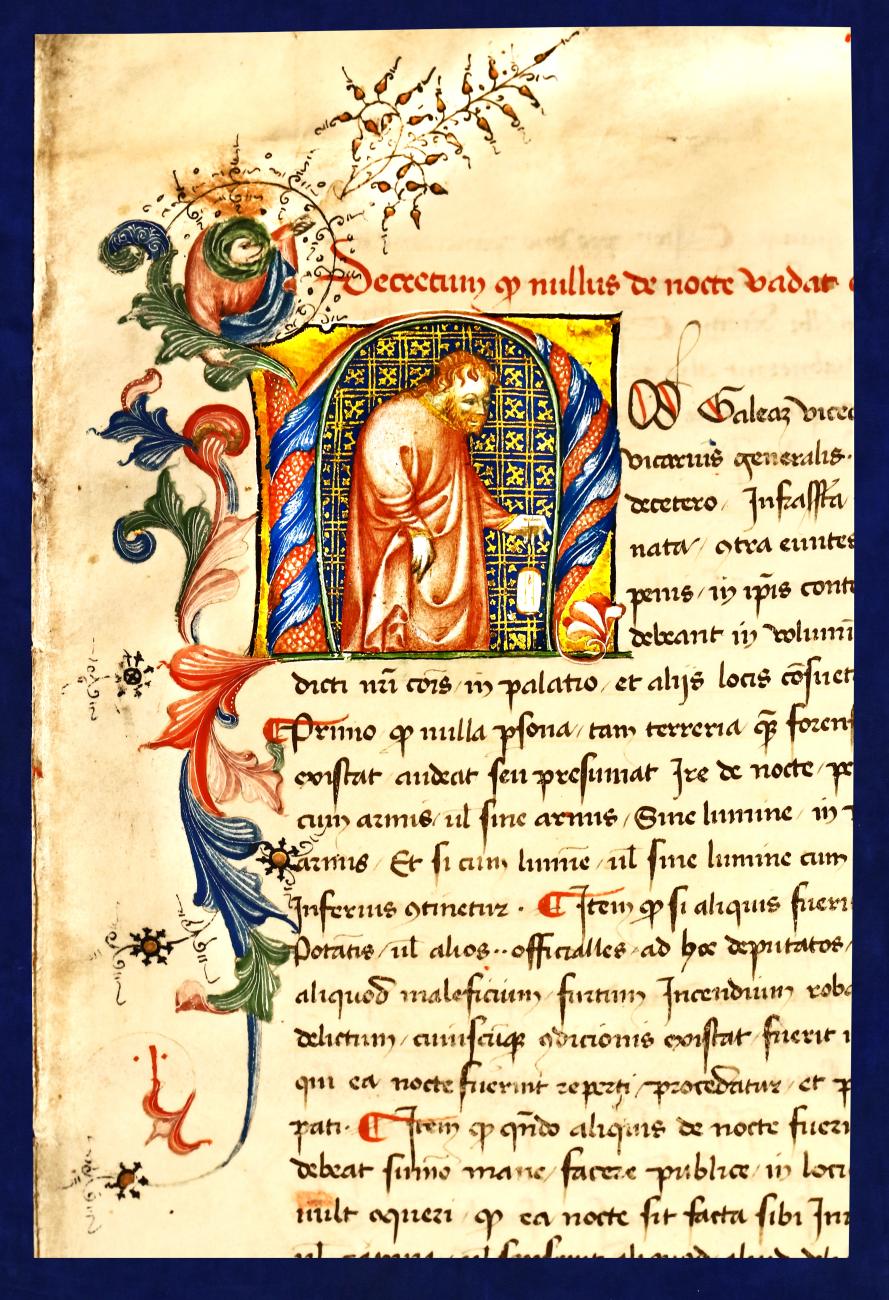 Decretum ꝙ nullus de nocte vadat
Nos Galeaz vicec
vicarius generalis.
decetero. Infrascta
nata, ɔtra euntes
penis, in ip̄is conte
debeant in volumi
dicti nr̄i cōis, in palatio, et alijs locis cōsuet
Primo ꝙ nulla psona, tam terreria, qꝫ forens
existat audeat seu presumat Ire de nocte, pe
cum armis, ul sine armis, Sine lumine, in
armis, Et si cum lumīe, ul sine lumine cum
Inferius ɔtinetur. Item ꝙ si aliquis fueri
Potātis, ul alios..officialles, ad hoc deputatos,
aliquod maleficium, furtum Incendium roba
delictum, cuiuscūqꝫ ɔdicionis existat, fuerit
qui ea nocte fuerint reperti, procedatur, et p
pati. Item ꝙ qn̄do aliquis de nocte fueri
debeat sumo mane, facere publice, in loci
uult ɔqueri, ꝙ ea nocte sit facta sibi Ini